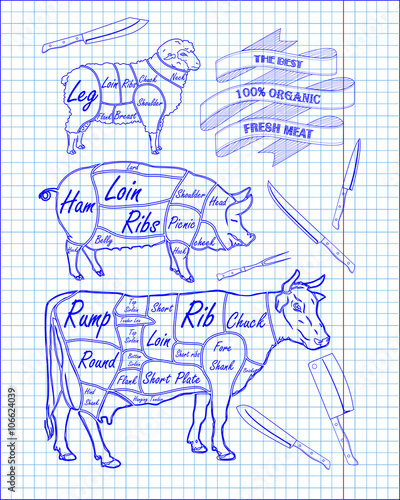 THE BEST
100% ORGANIC
FRESH MEAT
Leg
Loin
Ribs
Chuck
Neck
Shoulder
Flank
Breast
Lard
Ham
Loin
Ribs
Shoulder
Head
Picnic
cheek
Belly
Hock
Rump
Round
Top
Sirloin
Short
Loin
Rib
Chuck
Top
Sirloin
Bottom
Sirloin
Short ribs
Fore
Shank
Flank
Short Plate
Hind
Shank
Adobe Stock
#106624039